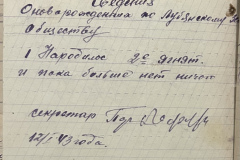 Сведения
О новорожденных по Лубянскому
обществу
1 Народилос 2е дитят.
и пока больше нет ничего
секретар
12/I 43 года.